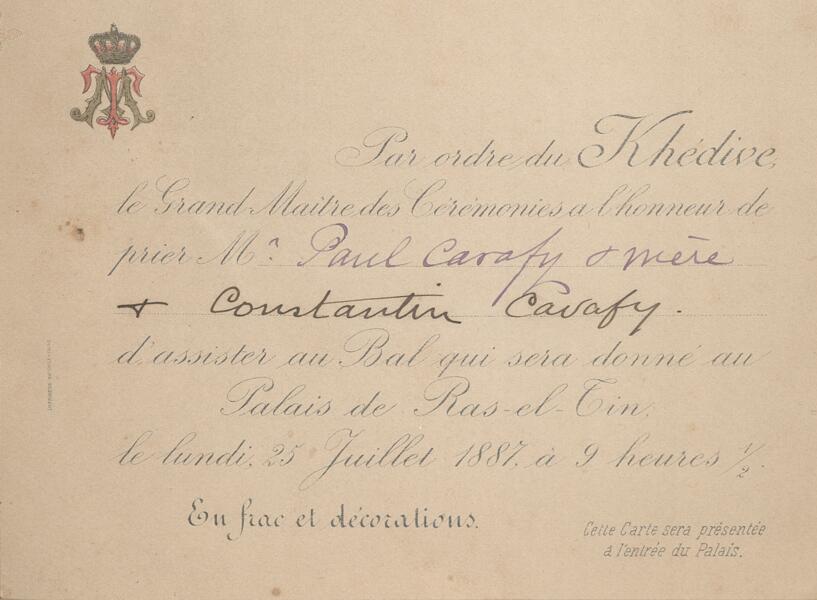 Par ordre du Khédive,
le Grand Maître des Cérémonies a l'honneur de
prier Mr. Paul Cavafy & mère
& Constantin Cavafy.
d'assister au Bal qui sera donné au
Palais de Ras-el-Tin,
le lundi, 25 Juillet 1887, à 9 heures 1/2.
En frac et décorations.
Cette Carte sera présentée
à l'entrée du Palais.